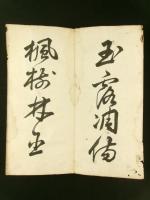 玉露凋傷
楓樹林巫